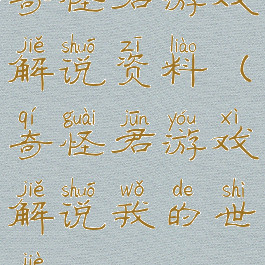 奇怪君游戏
jiě shuō zī liào
解说资料（
qí guài jūn yóu xì
奇怪君游戏
jiě shuō wǒ de shì
解说我的世
jiè